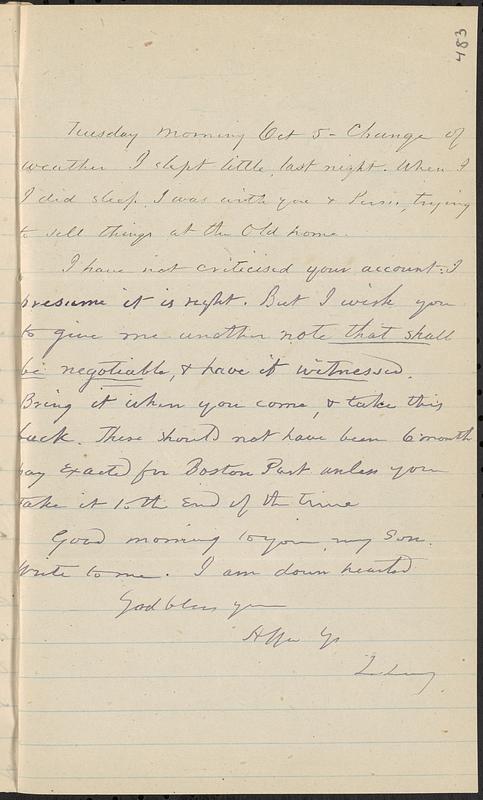 483
Tuesday morning Oct 5 - Change of
weather I slept little last night. When I
I did sleep I was with you & Persis, trying
to sell things at the Old home.
I have not criticised your account: I
presume it is right. But I wish you
to give me another note that shall
be negotiable, & have it witnessed.
Bring it when you come, & take this
back. There should not have been 6 month
pay exacted for Boston Post unless you
take it to the End of the time
Good morning to you, my Son.
Write to me. I am down hearted
God bless you
Affec Yr